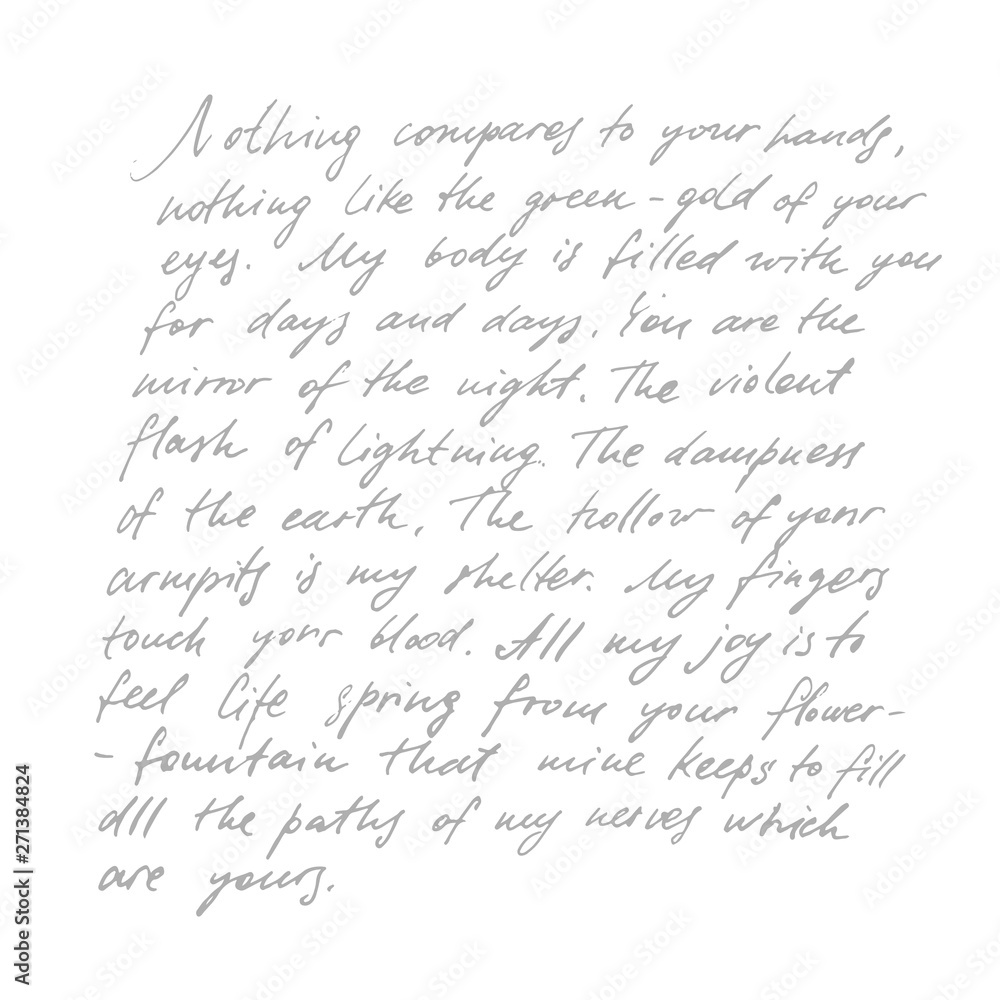 Nothing compares to your hands,
nothing like the green-gold of your
eyes. My body is filled with you
for days and days. You are the
mirror of the night. The violent
flash of lightning. The dampness
of the earth. The hollow of your
armpits is my shelter. My fingers
touch your blood. All my joy is to
feel life spring from your flower-
-fountain that mine keeps to fill
all the paths of my nerves which
are yours.
Adobe Stock | #271384824